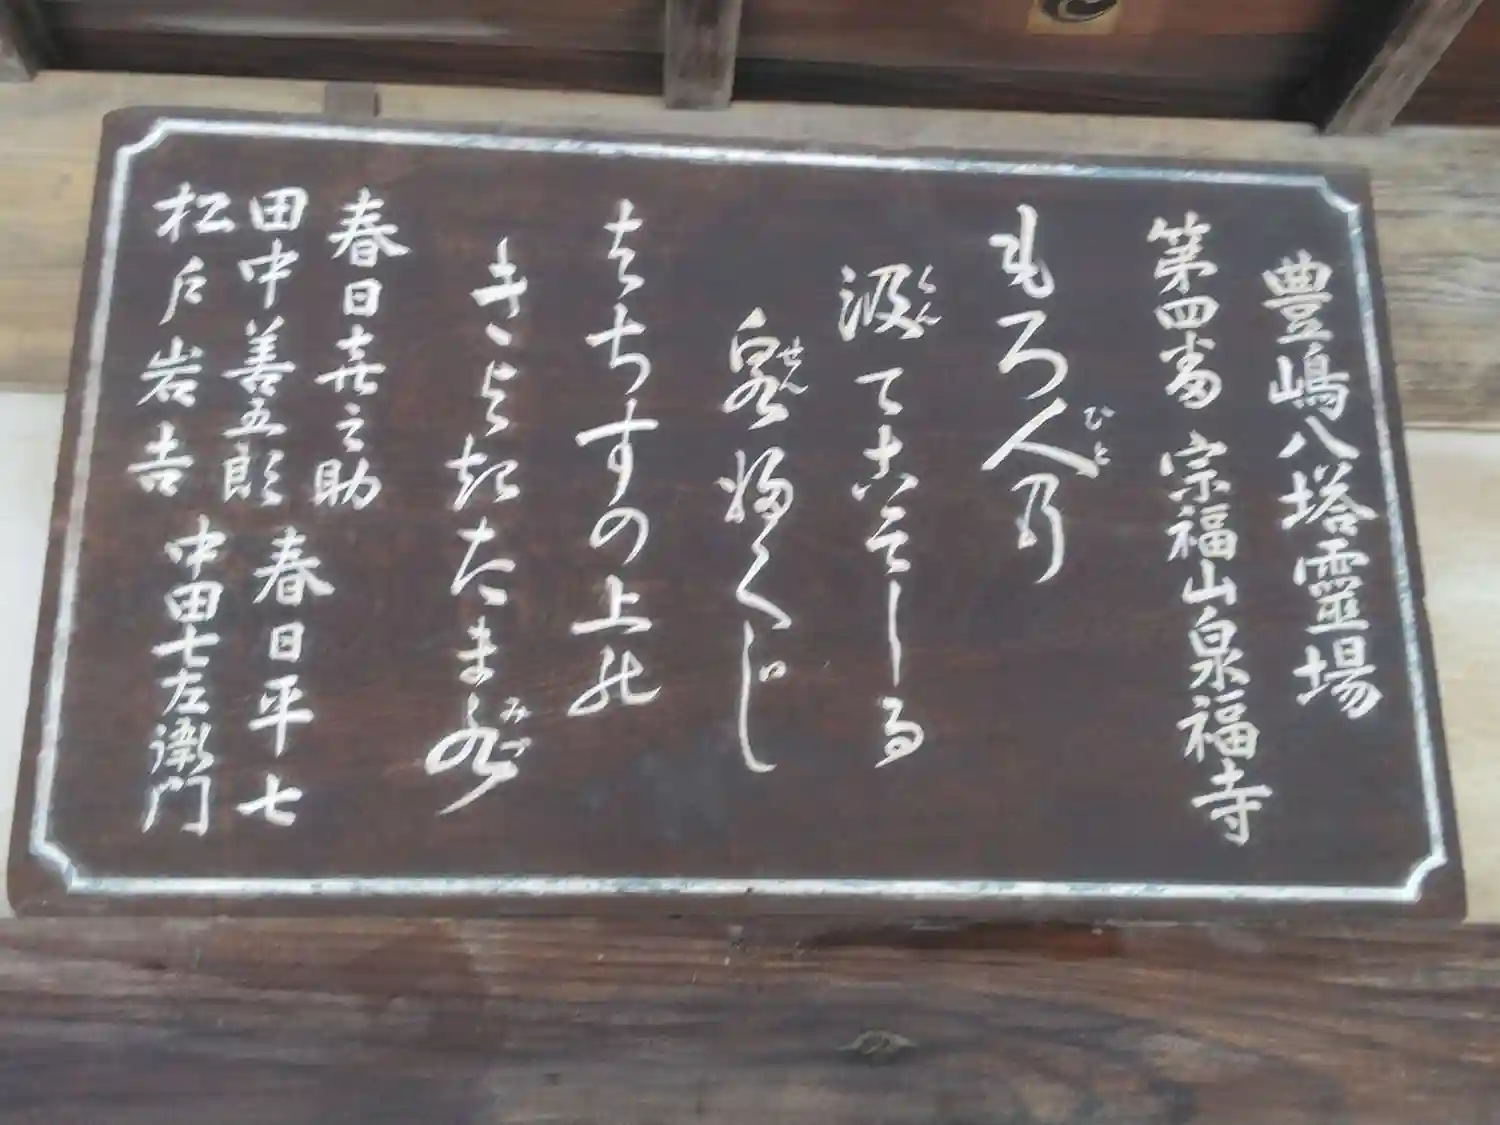 豊嶋八塔霊場
第四番 宗福山泉福寺
もろ人乃
ひと
汲てこそしる
くん
泉ふくじ
せん
はちすの上の
きよきたま水
みづ
春日喜之助
田中善五郎 春日平七
松戸岩吉 中田七左衛門